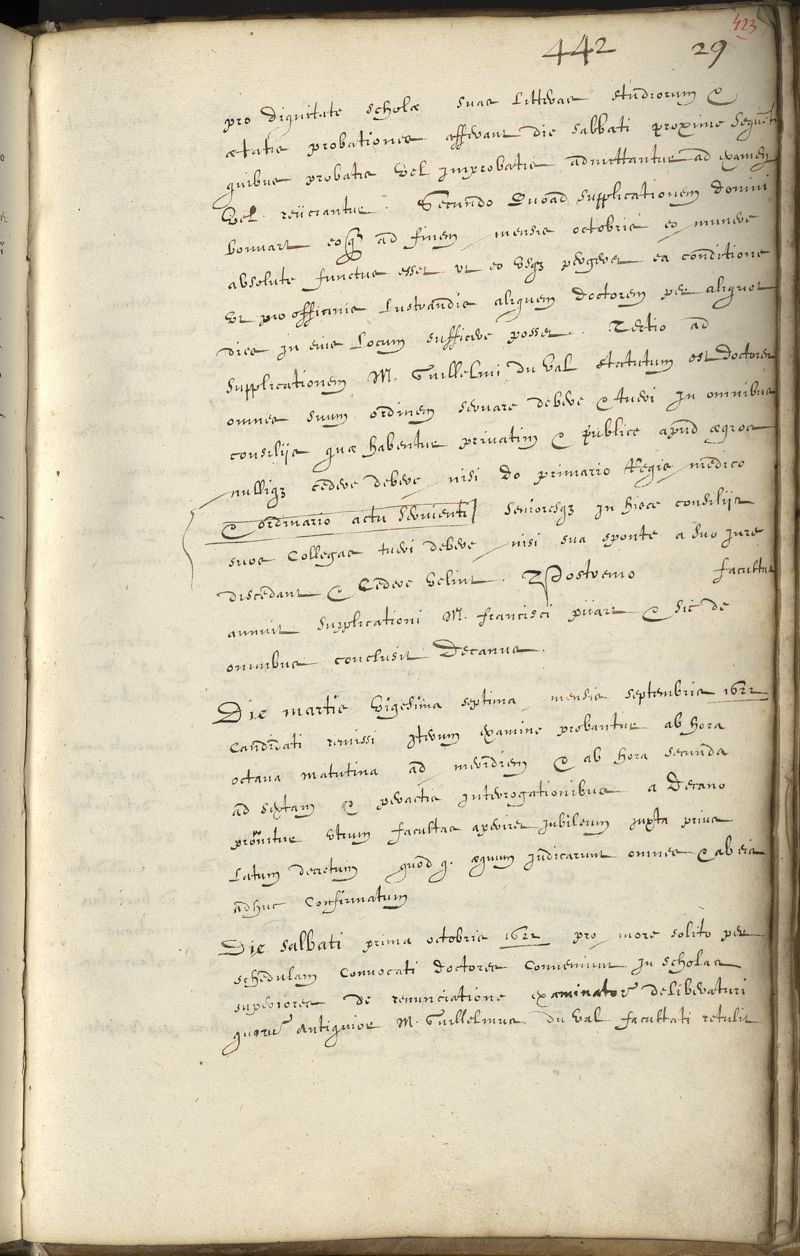 423
442 29
pro dignitate scholæ suas litteras studiorum &
ætatis probationes afferant die sabbati proxime sequēti
quibus probatis vel improbatis admittantur ad examen
vel reiiciantur. Secundo Quoad supplicationem domini
Bouuart eousq ad finem mensis octobris eo munere
absolute functus esset ut eo usqȝ pergeret ea conditione
ut pro officinis lustrandis aliquem doctorem per aliquot
dies in eius locum sufficere posset. Tertio ad
supplicationem M. Guillelmi Du Val statutum est doctores
omnes suum ordinem seruare debere & tueri in omnibus
consiliis quæ habentur priuatim & publice apud ægros
nulliqȝ cedere debere nisi do primario Regis medico
& ordinario actu seruienti] senioresqȝ in hisce consiliis
suos Collegas tueri debere nisi sua sponte a suo iure
discedant & Cedere velint. Postremo facultas
annuit supplicationi M. francisci piiart & sic de
omnibus conclusit Decanus.
Die martis vigesima septima mensis septembris 1622
Candidati remissi iterum examine probantur ab hora
octaua matutina ad meridiem & ab hora secunda
ad sextam & peractis interrogationibus a Decano
proponitur utrum facultas aperiret iubileum iuxta prius
latum decretum quod q. æquum iudicarunt omnes & ab eis
adhuc Confirmatum
Die sabbati prima octobris 1622 pro more solito per
schedulam Conuocati doctores Conueniunt in scholas
superiores de renunciatione examinatorū deliberaturi
quorū antiquior M. Guillelmus du Val facultati retulit